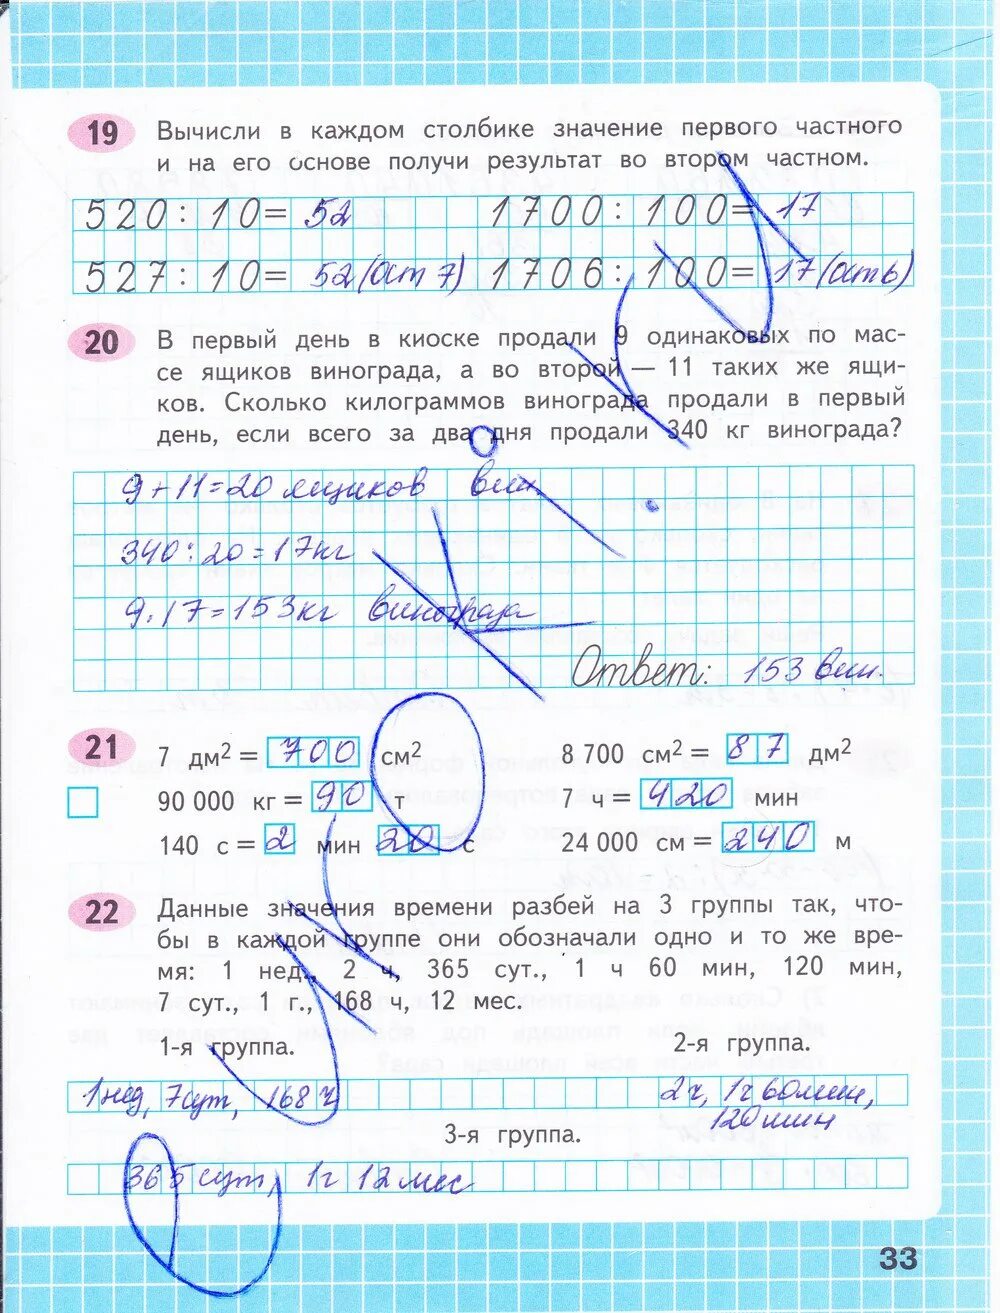 19 Вычисли в каждом столбике значение первого частного
и на его основе получи результат во втором частном.
520 : 10 = 52 1700 : 100 = 17
527 : 10 = 52 (ост 7) 1706 : 100 = 17 (ост 6)
20 В первый день в киоске продали 9 одинаковых по мас-
се ящиков винограда, а во второй — 11 таких же ящи-
ков. Сколько килограммов винограда продали в первый
день, если всего за два дня продали 340 кг винограда?
9 + 11 = 20 ящиков вин.
340 : 20 = 17 кг
9 · 17 = 153 кг винограда
Ответ: 153 вин.
21 7 дм² = 700 см² 8 700 см² = 87 дм²
90 000 кг = 90 т 7 ч = 420 мин
140 с = 2 мин 20 с 24 000 см = 240 м
22 Данные значения времени разбей на 3 группы так, что-
бы в каждой группе они обозначали одно и то же вре-
мя: 1 нед., 2 ч, 365 сут., 1 ч 60 мин, 120 мин,
7 сут., 1 г., 168 ч, 12 мес.
1-я группа. 2-я группа.
1 нед, 7 сут, 168 ч 2 ч, 1 ч 60 мин,
120 мин
3-я группа.
365 сут, 1 г 12 мес
33